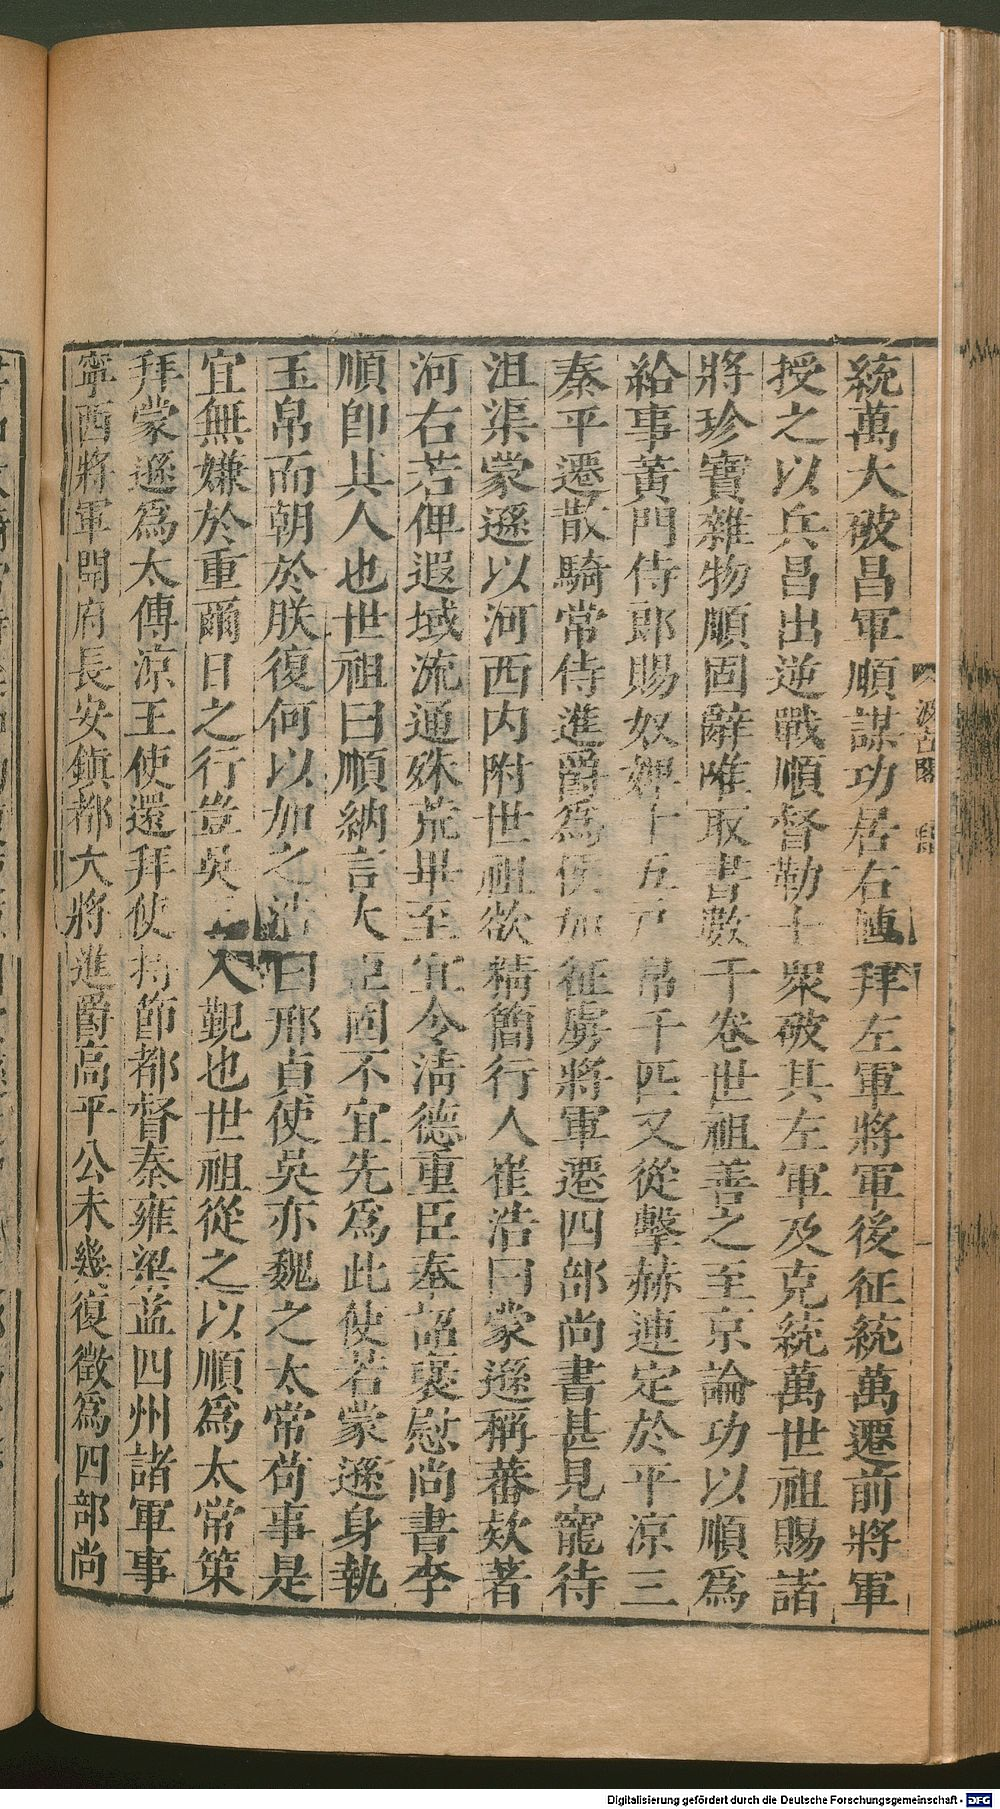 統萬大破昌軍順謀功居右轉拜左軍將軍後征統萬遷前將軍
授之以兵昌出逆戰順督勒士衆破其左軍及克統萬世祖賜諸
將珍寶雜物順固辭唯取書數千卷世祖善之至京論功以順爲
給事黃門侍郎賜奴婢十五戶帛千匹又從擊赫連定於平涼三
秦平遷散騎常侍進爵爲侯加征虜將軍遷四部尚書甚見寵待
沮渠蒙遜以河西內附世祖欲精簡行人崔浩曰蒙遜稱蕃款著
河右若俾遐域流通殊荒畢至宜令淸德重臣奉詔褒慰尚書李
順卽其人也世祖曰順納言大臣固不宜先爲此使若蒙遜身執
玉帛而朝於朕復何以加之浩曰邢貞使吳亦魏之太常苟事是
宜無嫌於重爾日之行豈吳入覲也世祖從之以順爲太常策
拜蒙遜爲太傅涼王使還拜使持節都督秦雍梁益四州諸軍事
寧西將軍開府長安鎭都大將進爵高平公未幾復徵爲四部尚
汲古閣
Digitalisierung gefördert durch die Deutsche Forschungsgemeinschaft - DFG